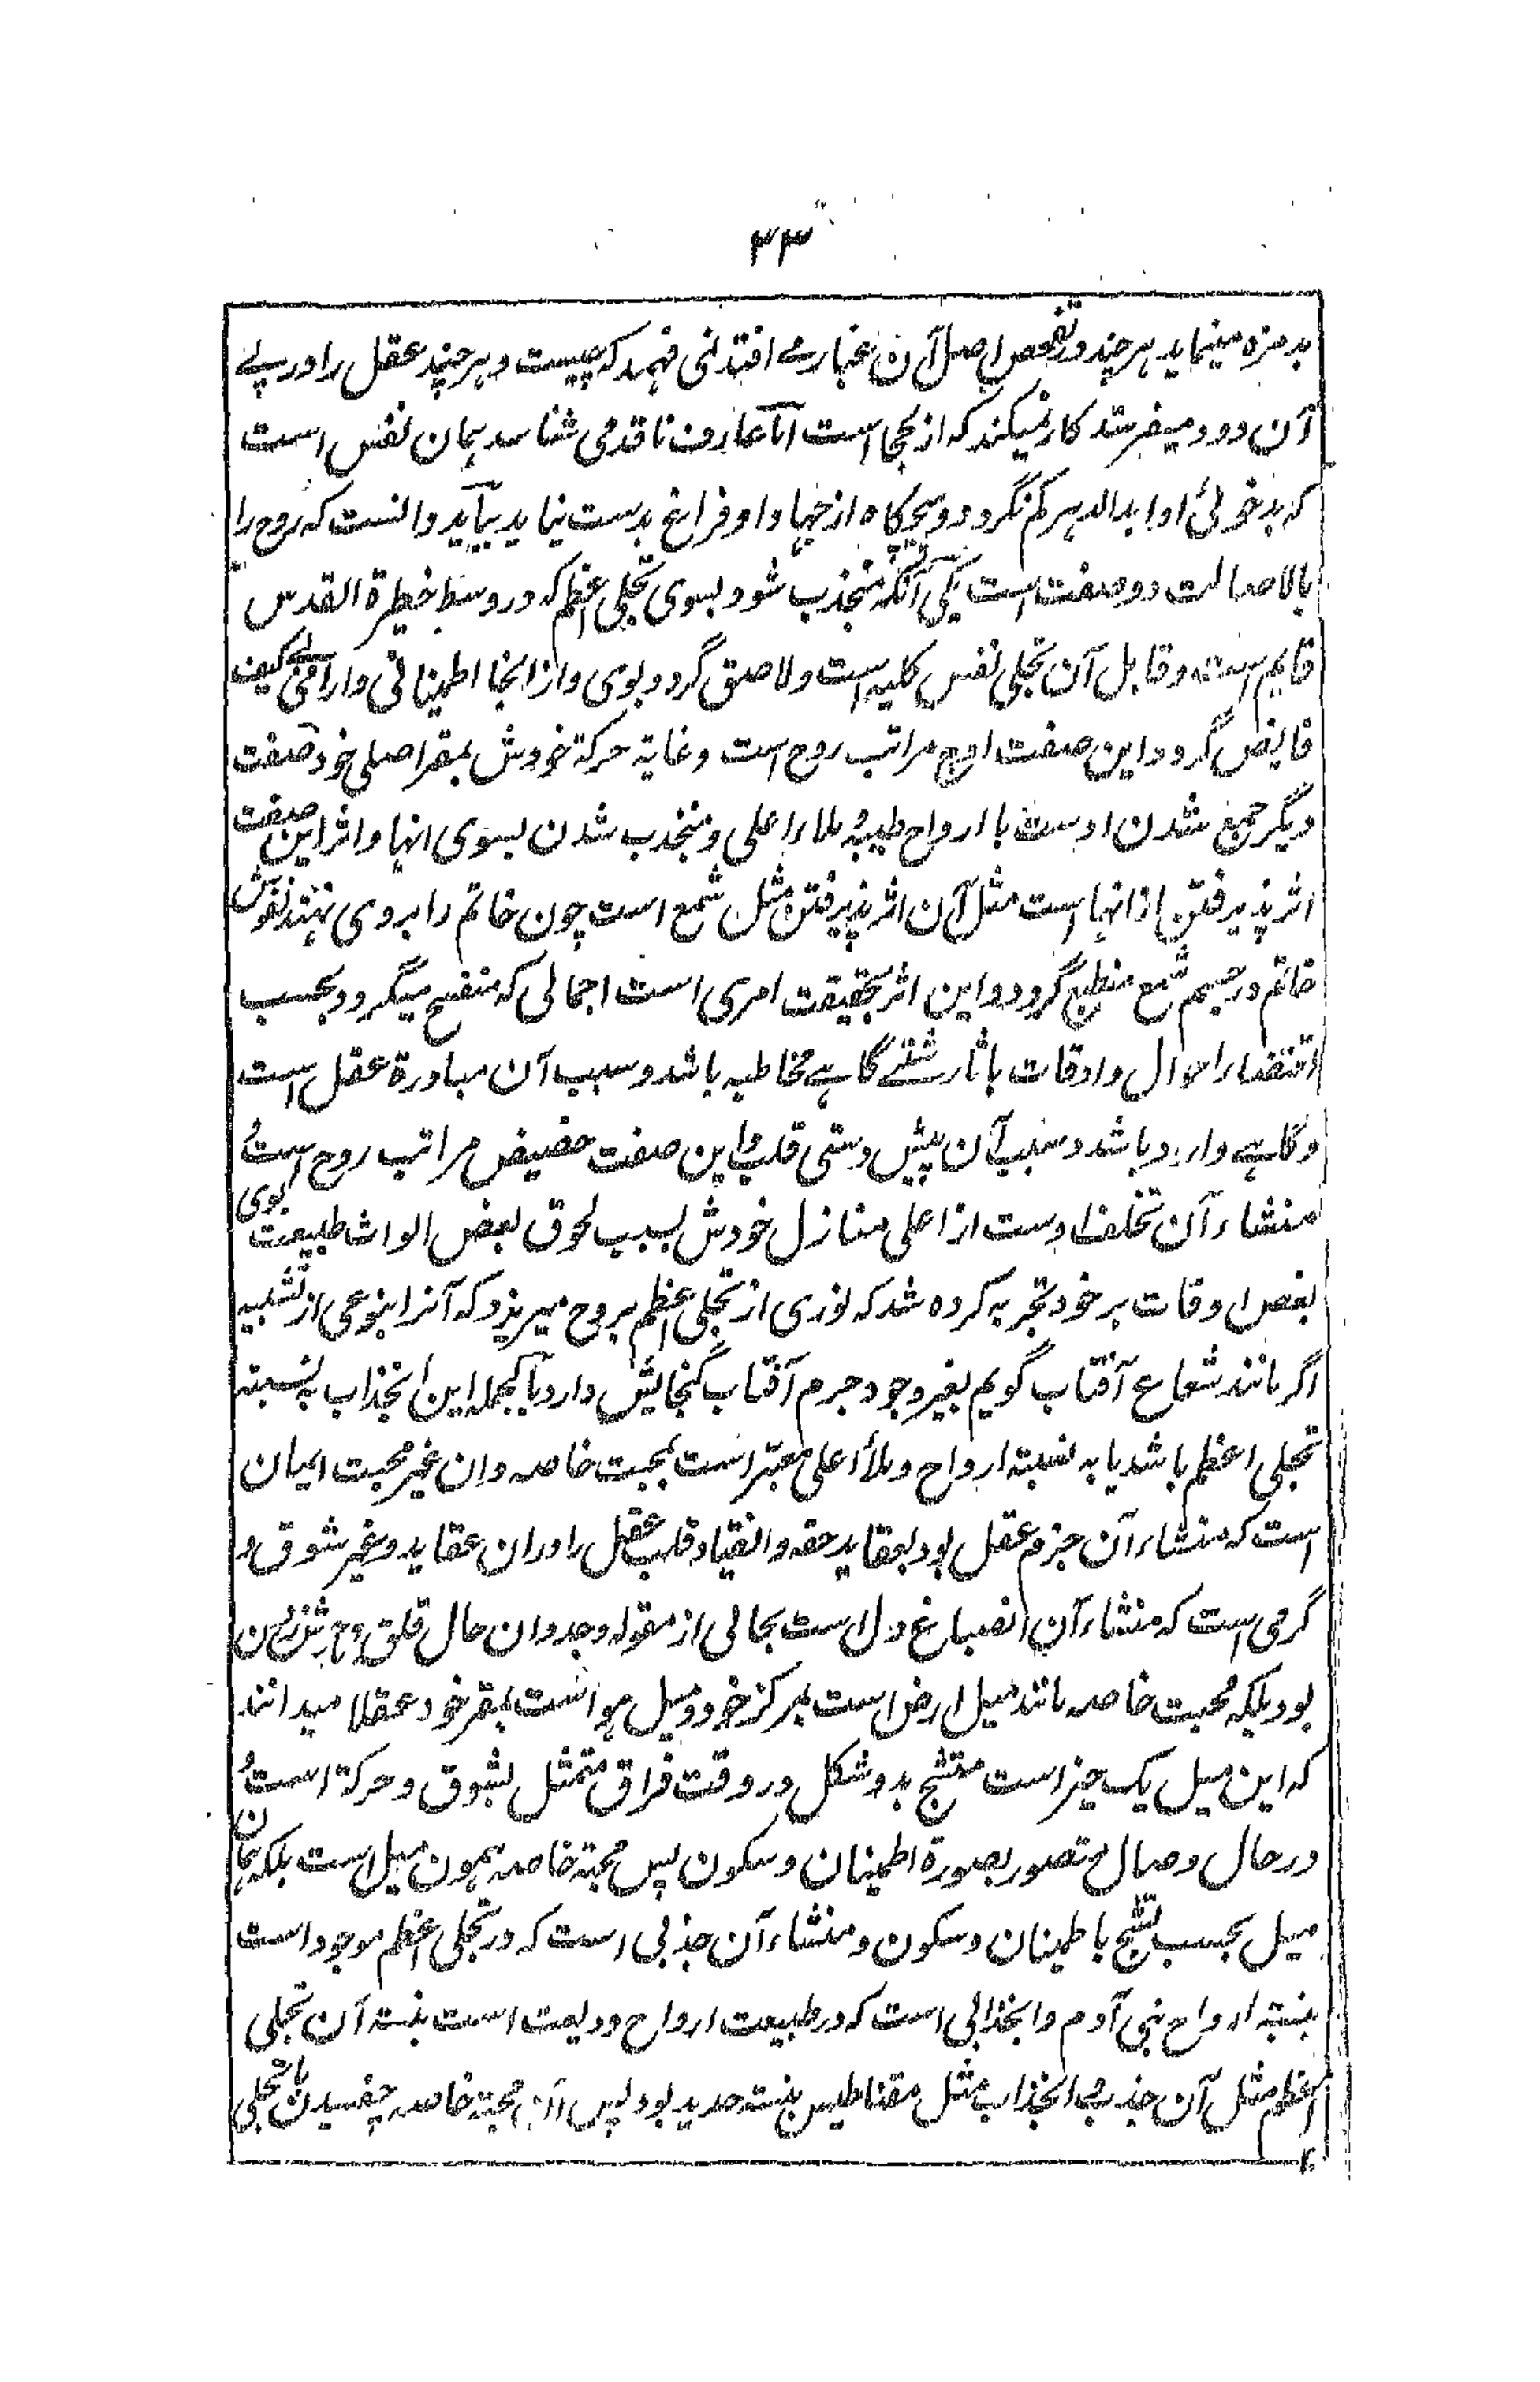 ۳۳
بدمزه مینماید هرچند در تفحص اصل آن غبار مے افتد نمی فهمد که چیست و هرچند عقل را در پئے
آن دود میفرستد کار نمیکند که از کجا است امّا عارف ناقد می شناسد همان نفس است
که بدخوئی او ابد الدهر کم نگردد و هیچگاه از جهاد او فراغ بدست نیاید بباید دانست که روح را
بالاصالت دو صفت است یکی آنکه منجذب شود بسوی تجلی اعظم که در وسط خطیرة القدس
قایم است و قابل آن تجلی نفس کلیه است و لاصق گردد بوی و از انجا اطمینانی و آرامی بے کیف
فایض گردد این صفت اوج مراتب روح است و غایة حرکة خودش بمقر اصلی خود صفت
دیگر جمع شدن اوست با ارواح طیبه و ملاء اعلی و منجذب شدن بسوی انها و اثر این صفت
اثر پذیرفتن از انها است مثل آن اثر پذیرفتن مثل شمع است چون خاتم را بروی نهند نقوش
خاتم در جسم شمع منطبع گردد و این اثر بحقیقت امری است اجمالی که منفتح میگردد بحسب
اقتضاء احوال و اوقات باثار شتے گاهے مخاطبه باشد و سبب آن مبادرة عقل است
و گاهے وارد باشد و سبب آن پیش دستی قلب و این صفت حضیض مراتب روح است
منشاء آن تخلف اوست از اعلی منازل خودش بسبب لحوق بعض الواث طبیعت بوی
بعض اوقات بر خود تجربه کرده شد که نوری از تجلی اعظم بروح میریزد که آنرا بنوعی از تشبیه
اگر مانند شعاع آفتاب گویم بغیر وجود جرم آفتاب گنجایش دارد بالجمله این انجذاب به نسبته
تجلی اعظم باشد یا به نسبته ارواح و ملأ اعلی معبّر است بمحبت خاصه و ان غیر محبت ایمان
است که منشاء آن جزم عقل بود بعقاید حقه و انقیاد قلب عقل را دران عقاید و غیر شوق و
گرمی است که منشاء آن انصباغ دل است بحالی از مقوله وجد و ان حال قلق و
بود بلکه محبت خاصه مانند میل ارض است بمرکز خود و میل هوا است بمقر خود عقلا میدانند
که این میل یک چیز است متشبح بدو شکل در وقت فراق متمثل بشوق و حرکة است
در حال وصال متصور بصورة اطمینان و سکون پس محبة خاصه همون میل است بلکه همان
میل بحسب تشبح باطمینان و سکون و منشاء آن جذبی است که در تجلی اعظم موجود است
بنسبته ارواح بنی آدم و انجذابی است که در طبیعت ارواح ودیعت است بنسبته آن تجلی
اعظم مثل آن جذب و انجذاب مثل مقناطیس بنسبته حدید بود پس این محبة خاصه چفسیدن با تجلی